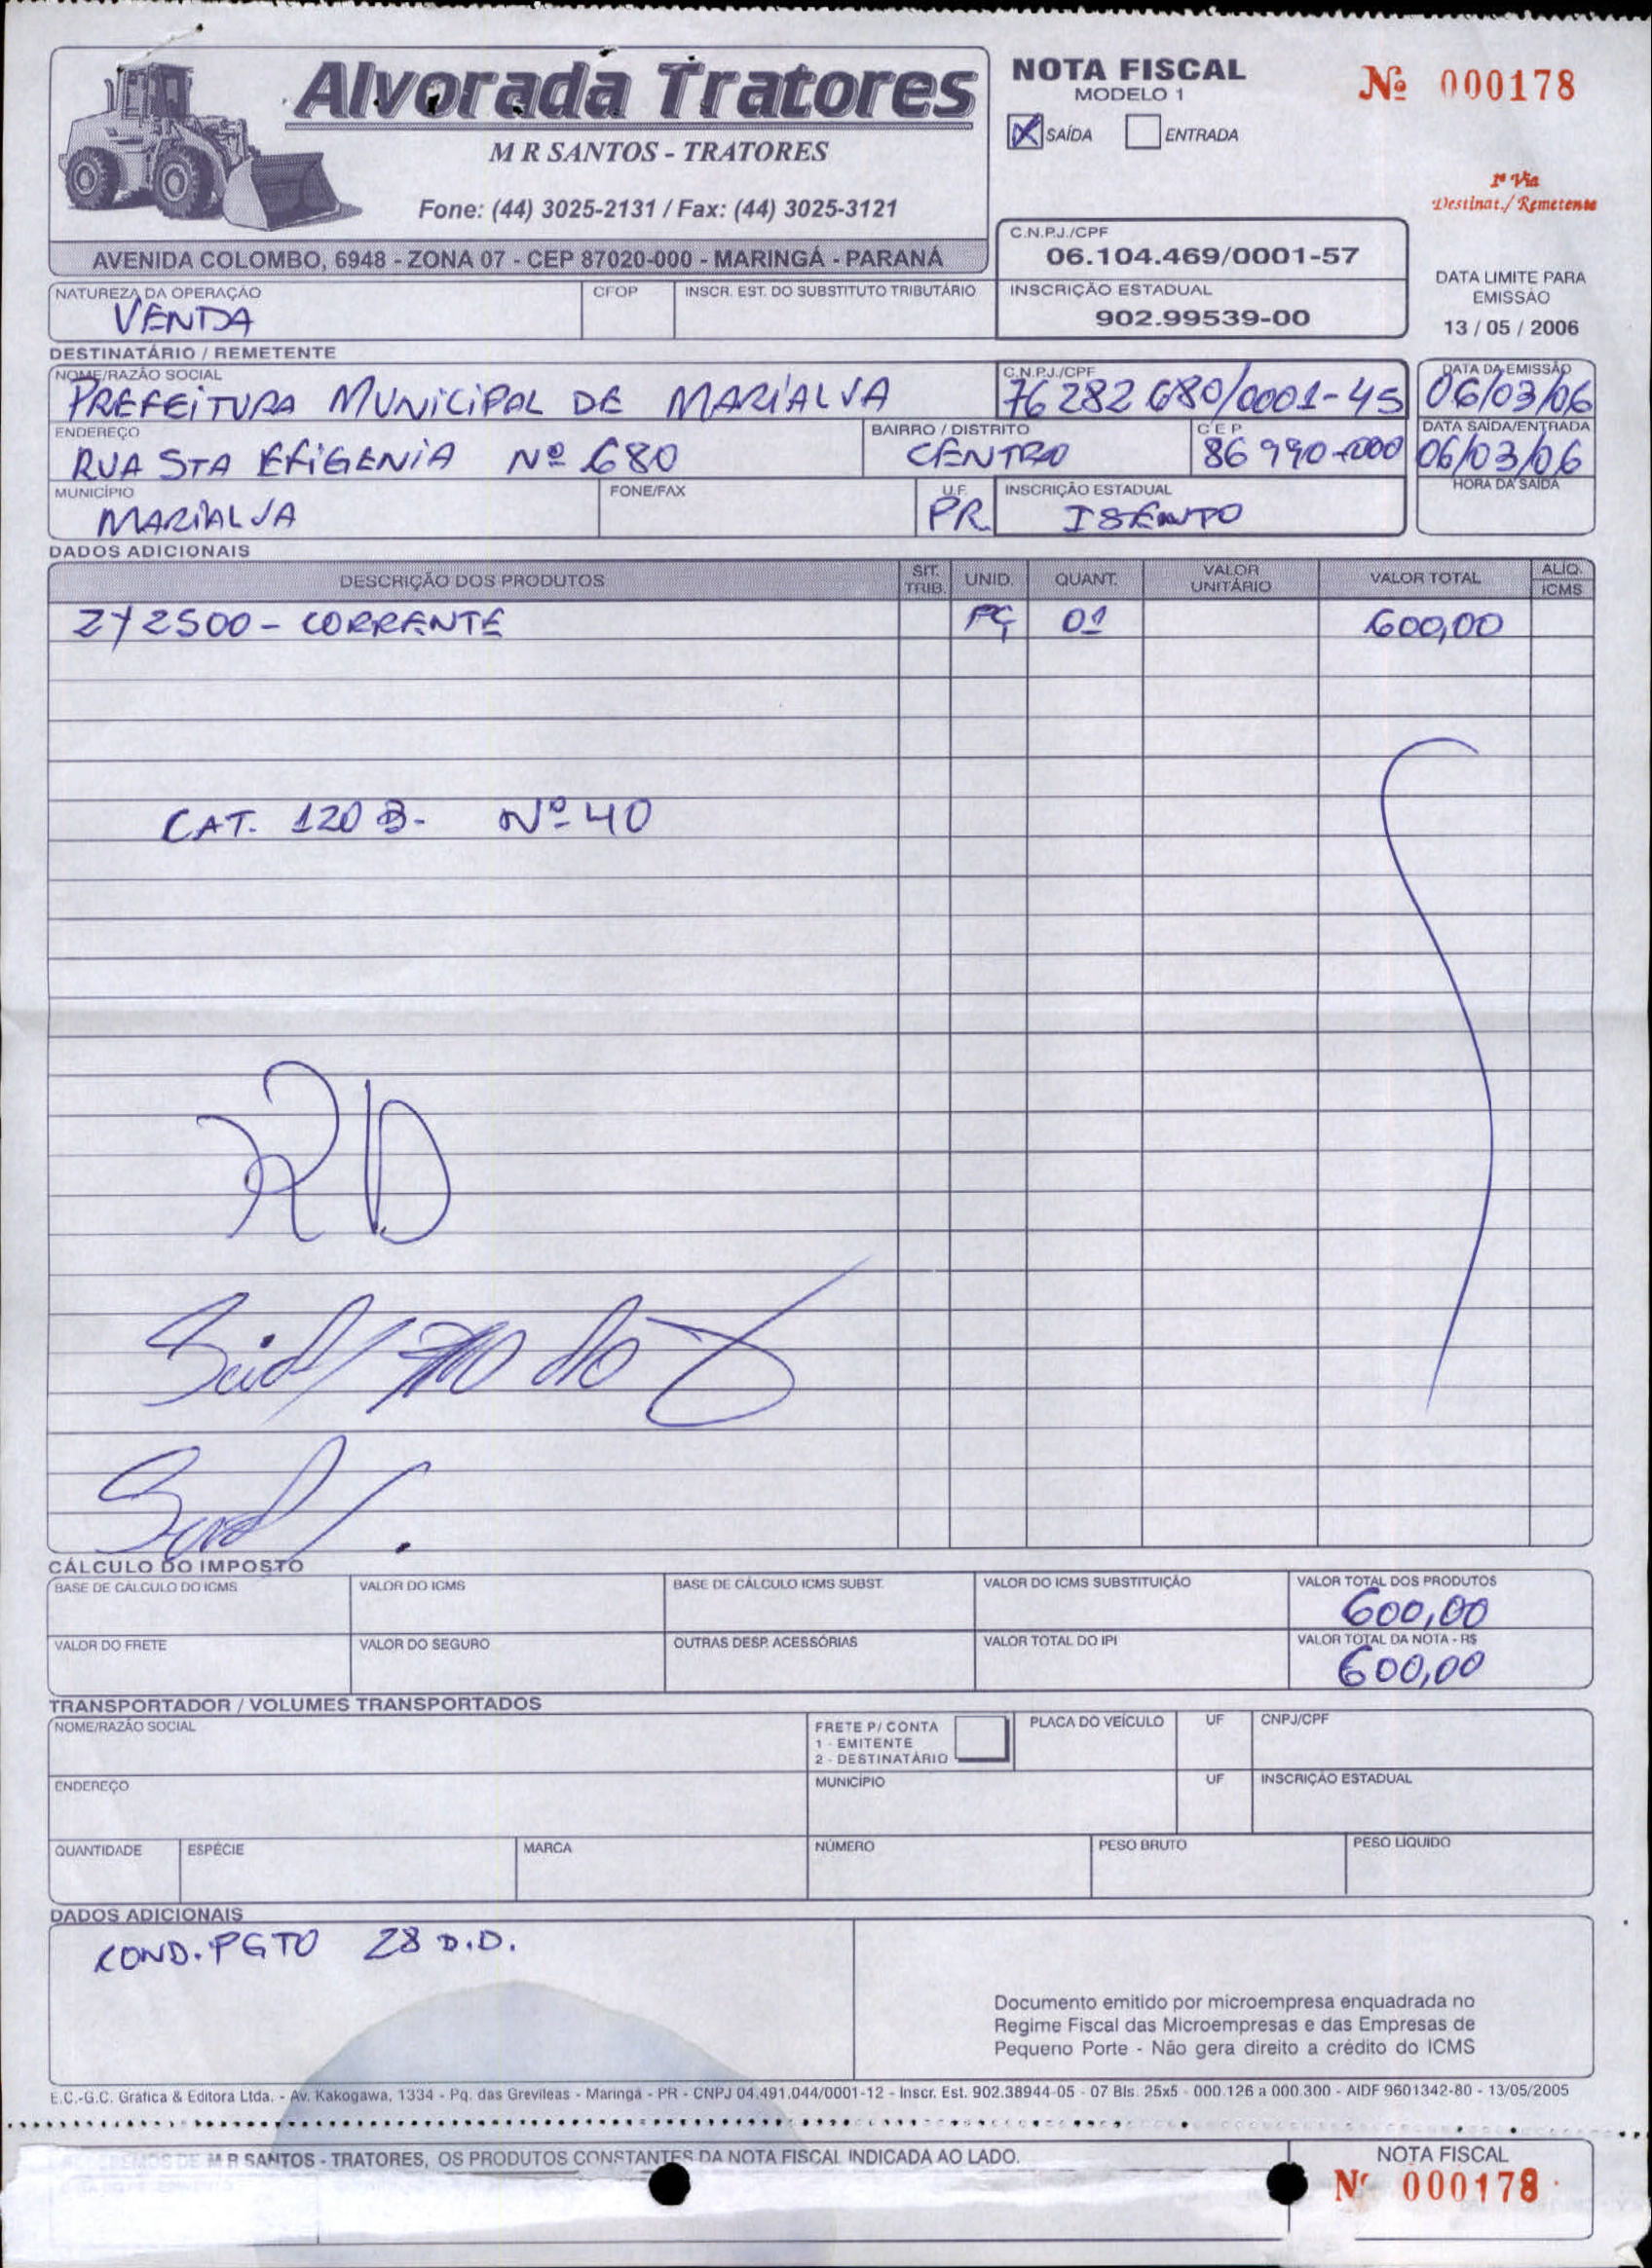 Alvorada Tratores
M R SANTOS - TRATORES
Fone: (44) 3025-2131 / Fax: (44) 3025-3121
AVENIDA COLOMBO, 6948 - ZONA 07 - CEP 87020-000 - MARINGÁ - PARANÁ
NOTA FISCAL
MODELO 1
X SAÍDA ENTRADA
Nº 000178
1ª Via
Destinat./ Remetente
C.N.P.J./CPF
06.104.469/0001-57
INSCRIÇÃO ESTADUAL
902.99539-00
DATA LIMITE PARA
EMISSÃO
13 / 05 / 2006
NATUREZA DA OPERAÇÃO CFOP INSCR. EST. DO SUBSTITUTO TRIBUTÁRIO
VENDA
DESTINATÁRIO / REMETENTE
NOME/RAZÃO SOCIAL C.N.P.J./CPF DATA DA EMISSÃO
PREFEITURA MUNICIPAL DE MARIALVA 76 282 680/0001-45 06/03/06
ENDEREÇO BAIRRO / DISTRITO C E P DATA SAÍDA/ENTRADA
RUA STA EFIGENIA Nº 680 CENTRO 86 990-000 06/03/06
MUNICÍPIO FONE/FAX U.F. INSCRIÇÃO ESTADUAL HORA DA SAÍDA
MARIALVA PR ISENTO
DADOS ADICIONAIS
DESCRIÇÃO DOS PRODUTOS SIT. TRIB. UNID. QUANT. VALOR UNITÁRIO VALOR TOTAL ALIQ. ICMS
2Y2500 - CORRENTE PÇ 01 600,00
CAT. 120 B - Nº 40
CÁLCULO DO IMPOSTO
BASE DE CÁLCULO DO ICMS VALOR DO ICMS BASE DE CÁLCULO ICMS SUBST. VALOR DO ICMS SUBSTITUIÇÃO VALOR TOTAL DOS PRODUTOS
600,00
VALOR DO FRETE VALOR DO SEGURO OUTRAS DESP. ACESSÓRIAS VALOR TOTAL DO IPI VALOR TOTAL DA NOTA - R$
600,00
TRANSPORTADOR / VOLUMES TRANSPORTADOS
NOME/RAZÃO SOCIAL FRETE P/ CONTA PLACA DO VEÍCULO UF CNPJ/CPF
1 - EMITENTE
2 - DESTINATÁRIO
ENDEREÇO MUNICÍPIO UF INSCRIÇÃO ESTADUAL
QUANTIDADE ESPÉCIE MARCA NÚMERO PESO BRUTO PESO LÍQUIDO
DADOS ADICIONAIS
COND. PGTO 28 D.D.
Documento emitido por microempresa enquadrada no
Regime Fiscal das Microempresas e das Empresas de
Pequeno Porte - Não gera direito a crédito do ICMS
E.C.-G.C. Gráfica & Editora Ltda. - Av. Kakogawa, 1334 - Pq. das Grevíleas - Maringá - PR - CNPJ 04.491.044/0001-12 - Inscr. Est. 902.38944-05 - 07 Bls. 25x5 - 000.126 a 000.300 - AIDF 9601342-80 - 13/05/2005
RECEBEMOS DE M R SANTOS - TRATORES, OS PRODUTOS CONSTANTES DA NOTA FISCAL INDICADA AO LADO.
NOTA FISCAL
Nº 000178